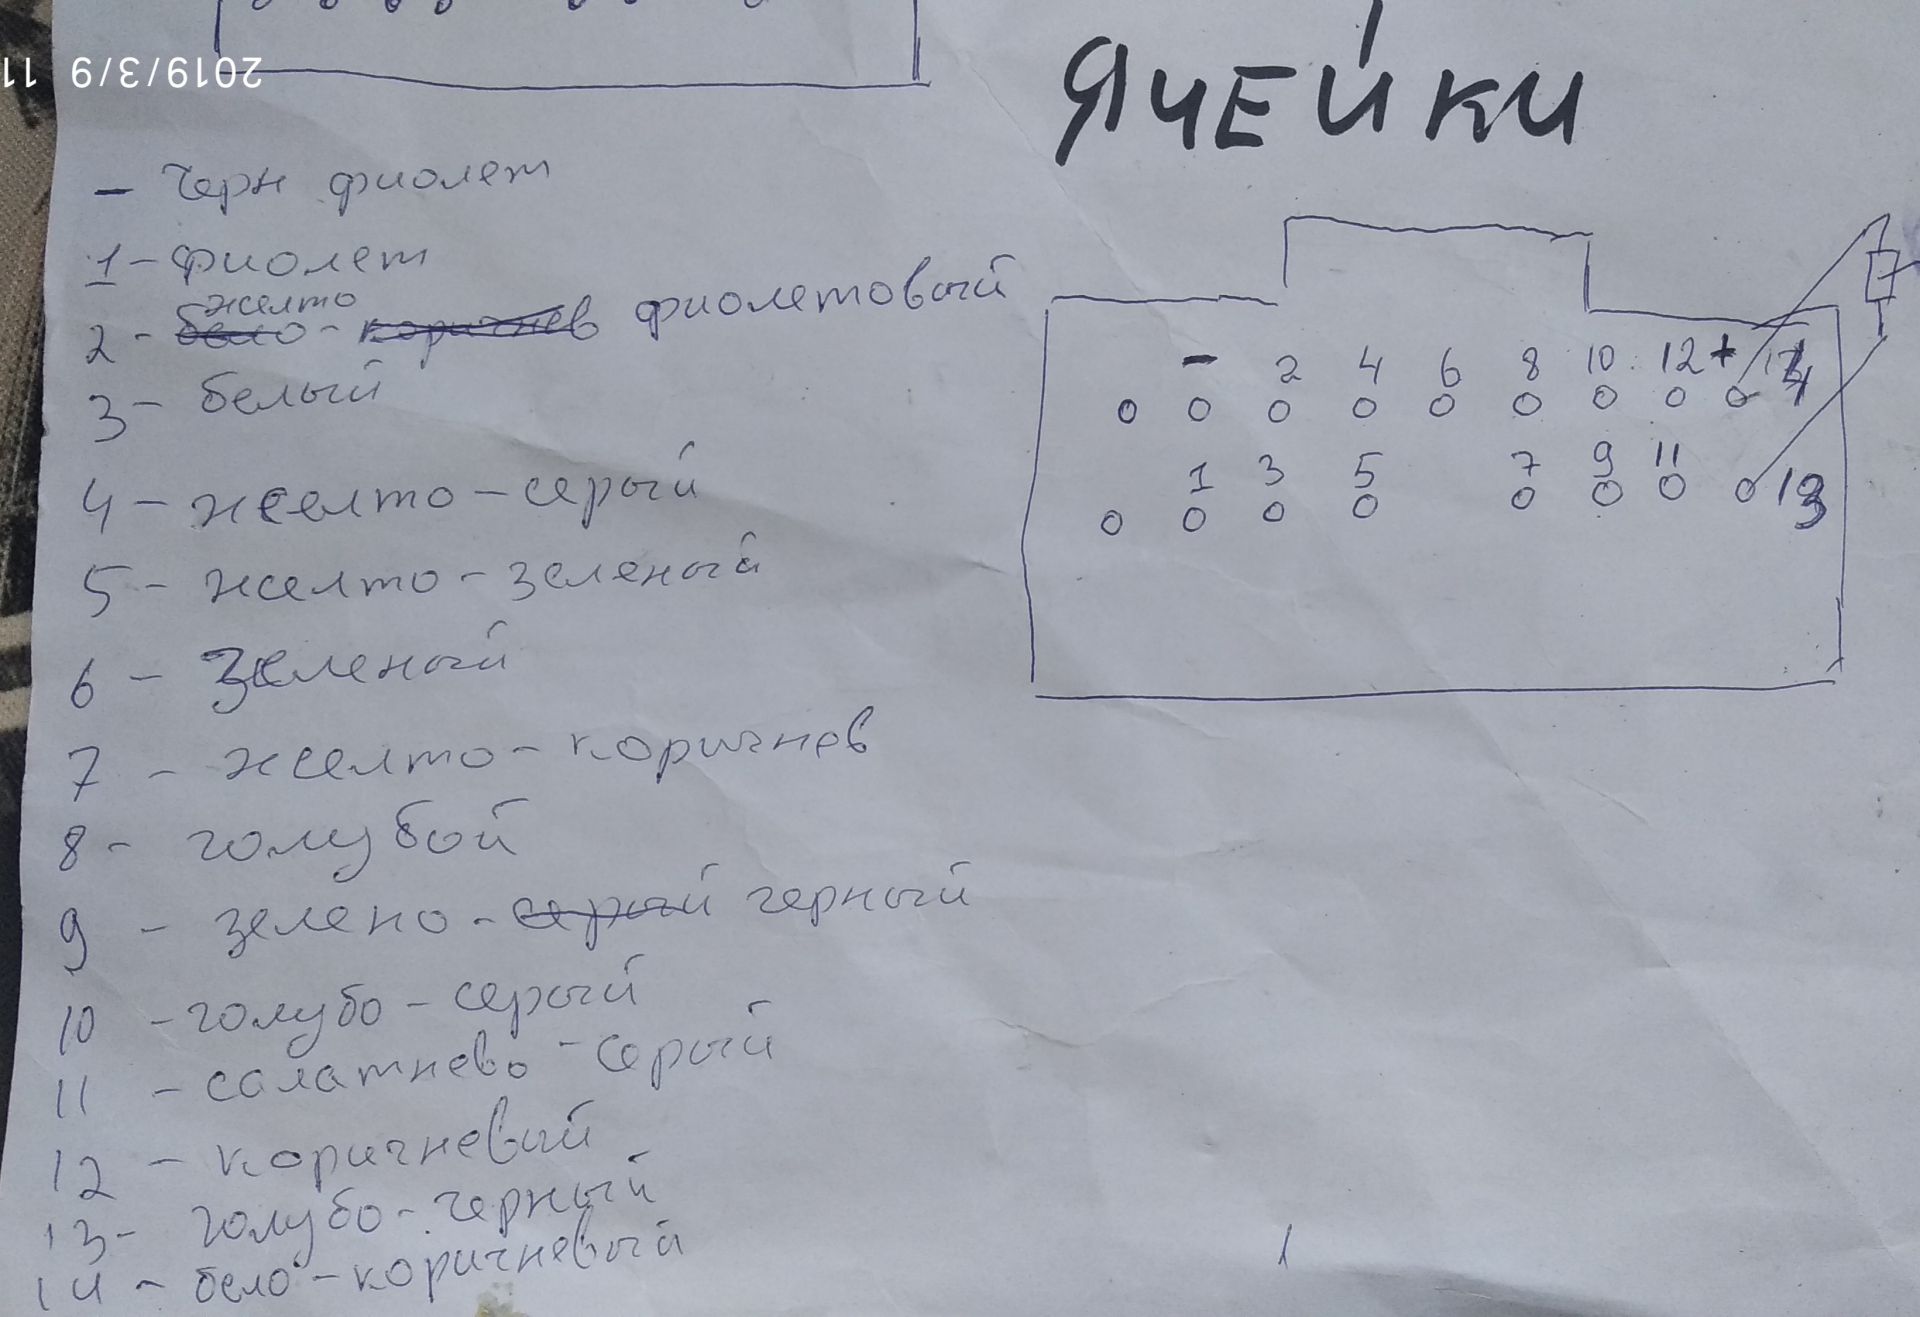 2019/3/9 11
ЯЧЕЙКИ
- черн фиолет
1 - фиолет
желто
2 - бело - коричнев фиолетовый
3 - белый
4 - желто - серый
5 - желто - зеленый
6 - зеленый
7 - желто - коричнев
8 - голубой
9 - зелено - серый черный
10 - голубо - серый
11 - салатнево - серый
12 - коричневый
13 - голубо - черный
14 - бело - коричневый
- 2 4 6 8 10 12 + 14
1 3 5 7 9 11 13